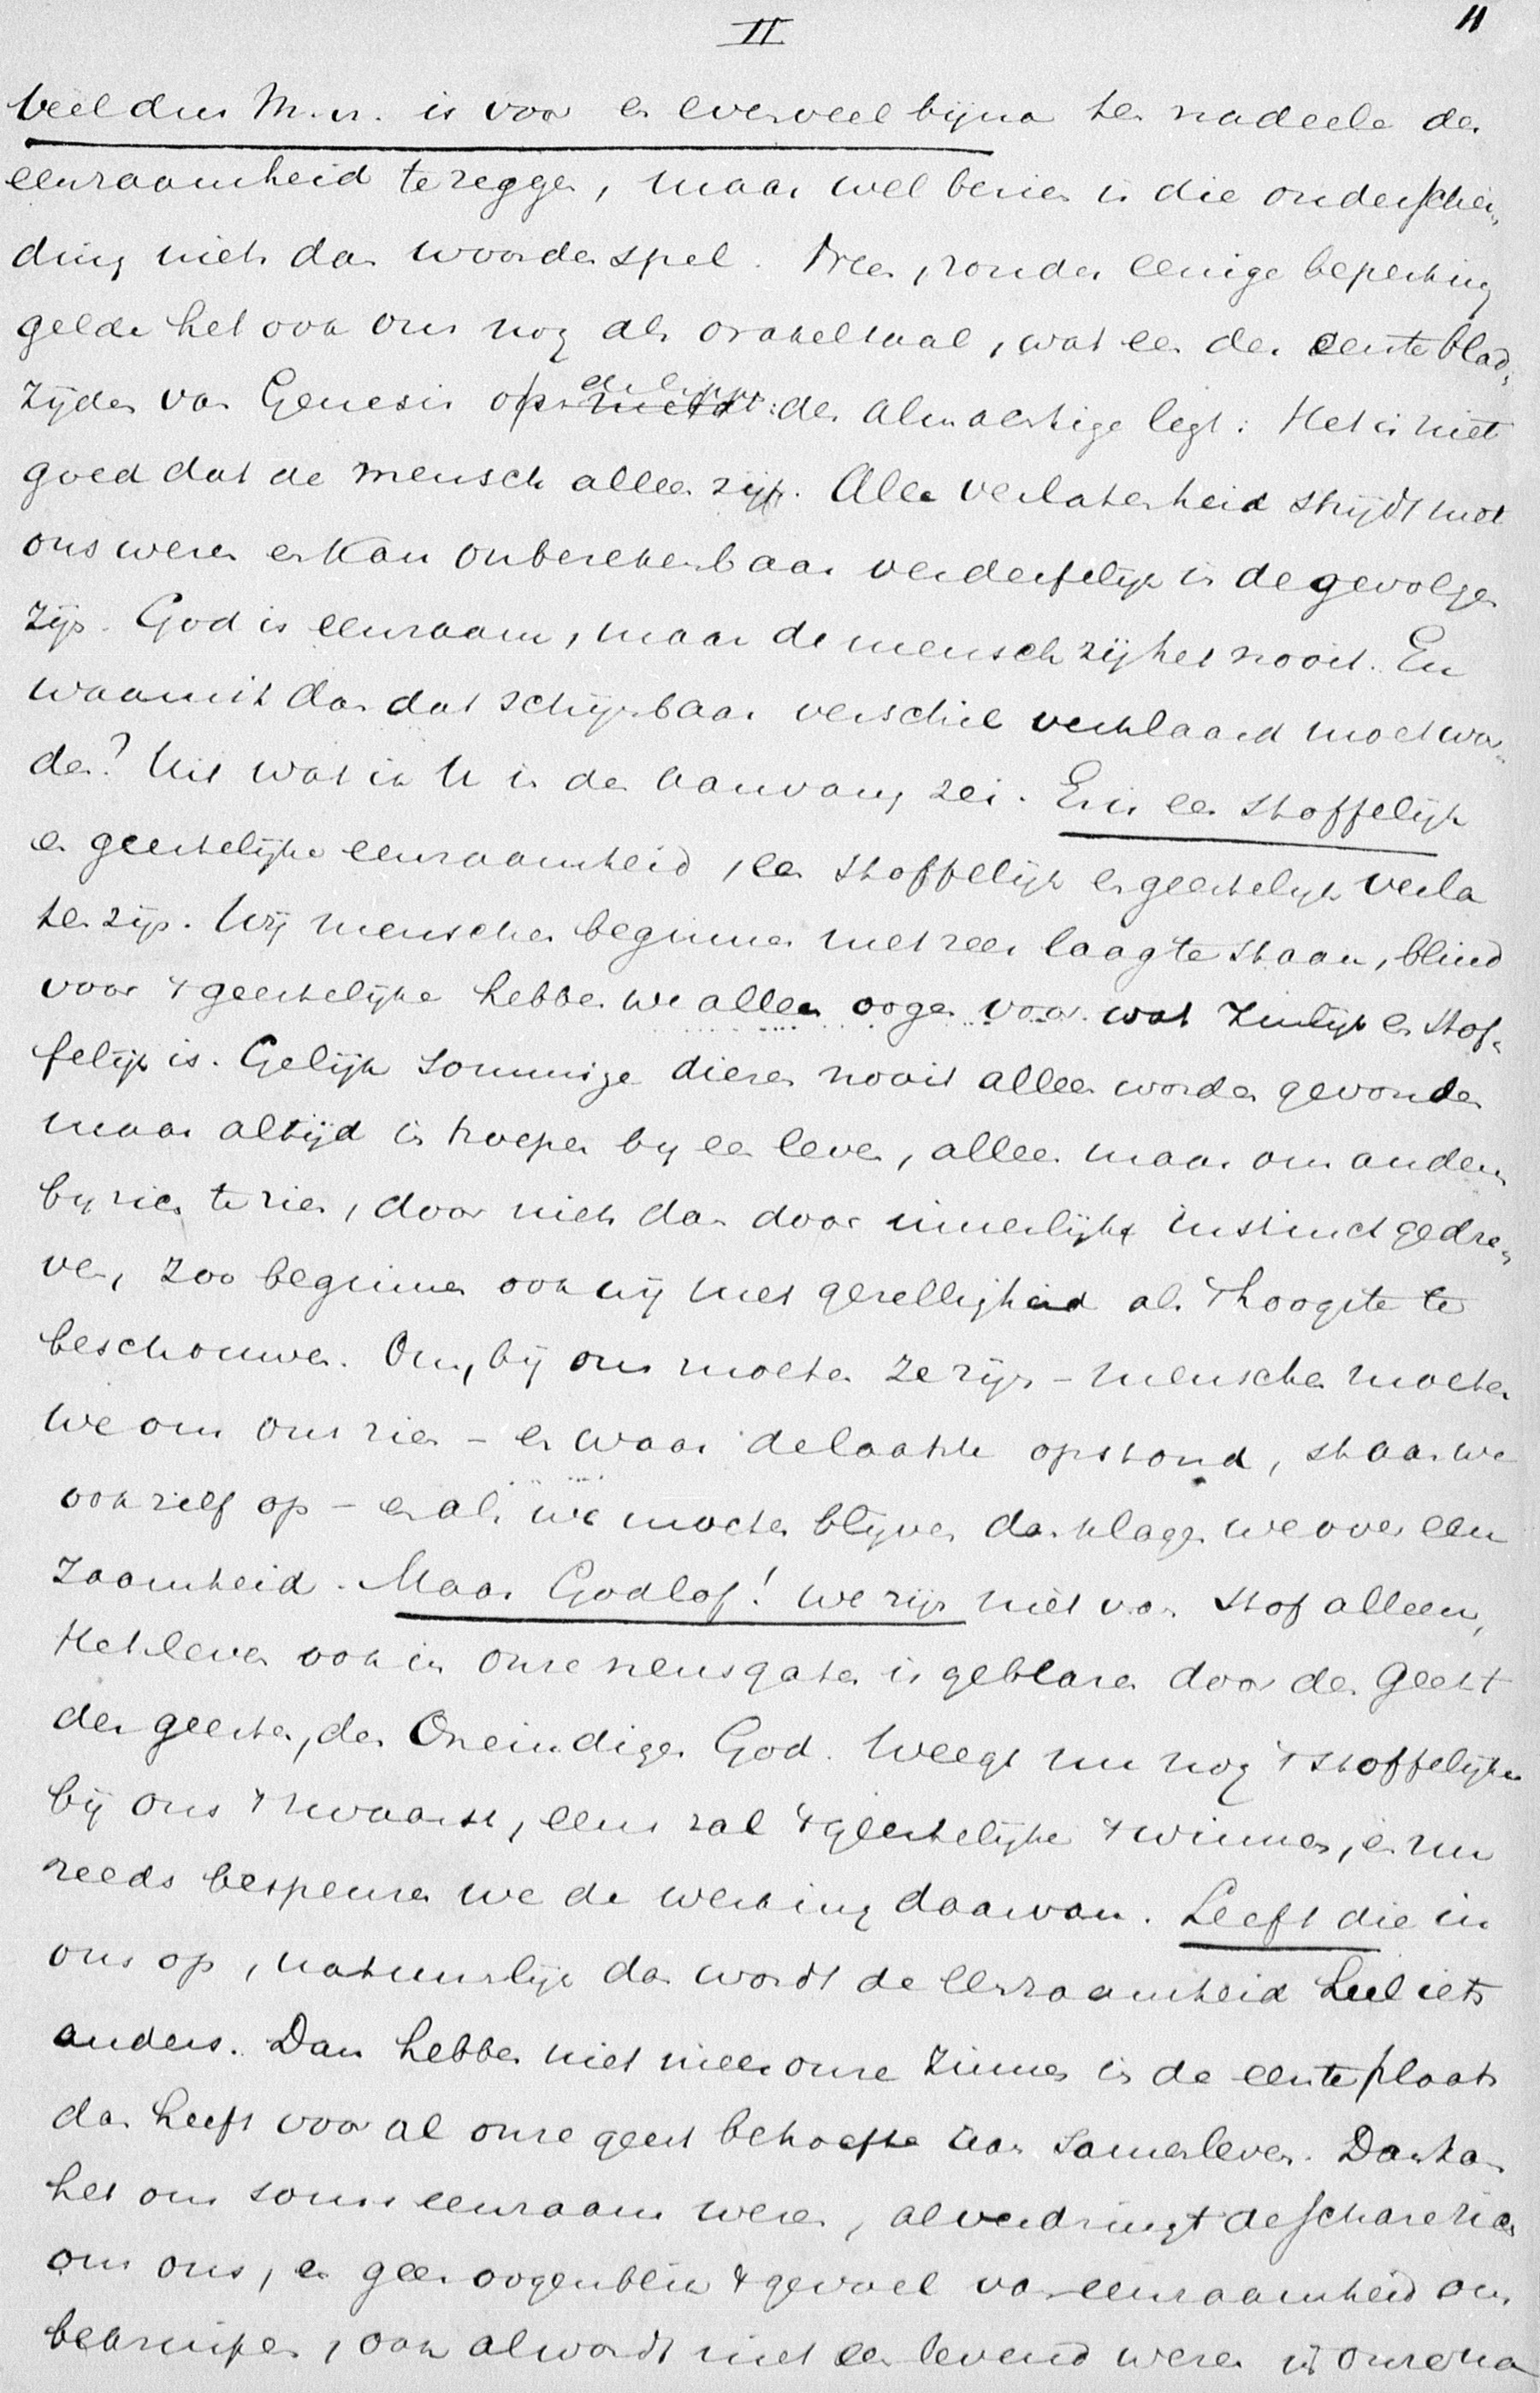 II
11
Veel dus M. vr. is voor en evenveel bijna ten nadeele der
eenzaamheid te zeggen, maar wel bezien is die onderschei-
ding niets dan woordenspel. Neen, zonder eenige beperking
gelde het ook ons nog als orakeltaal, wat een der eerste blad-
zijden van Genesis op de lippen den Almachtige legt: Het is niet
goed dat de mensch alleen zijn. Alle verlatenheid strijdt met
ons wezen en kan onberekenbaar verderfelijk in de gevolgen
zijn. God is eenzaam, maar de mensch zij het nooit. En
waaruit dan dat schijnbaar verschil verklaard moet wor-
den? Uit wat ik U in den aanvang zei. Er is een stoffelijk
en geestelijke eenzaamheid, een stoffelijk en geestelijk verla
ten zijn. Wij menschen beginnen met zeer laag te staan, blind
voor 't geestelijke hebben we alleen oogen voor wat zinlijk en stof-
felijk is. Gelijk sommige dieren nooit alleen worden gevonden
maar altijd in troepen by een leven, alleen maar om anderen
by zich te zien, door niets dan door innerlijke instinct gedre-
ven, zoo beginnen ook wij met gezelligheid als 't hoogste te
beschouwen. Om, bij ons moeten ze zijn - menschen moeten
we om ons zien - en waar de laatste opstond, staan we
ook zelf op - en als we moeten blijven dan klagen we over een
zaamheid. Maar Godlof! we zijn niet van stof alleen,
Het leven ook in onze neusgaten is geblazen door den Geest
der geesten, den Oneindigen God. Weegt nu nog 't stoffelijke
bij ons 't zwaarst, eens zal 't geestelijke 't winnen, en nu
reeds bespeuren we de werking daarvan. Leeft die in
ons op, natuurlijk dan wordt de eenzaamheid heel iets
anders. Dan hebben niet meer onze zinnen in de eerste plaats
dan heeft vooral onze geest behoefte aan samenleven. Dan kan
het ons soms eenzaam wezen, al verdringt de schare zich
om ons, en geen oogenblik 't gevoel van eenzaamheid ons
bekruipen, ook al wordt niet een levend wezen in onze na